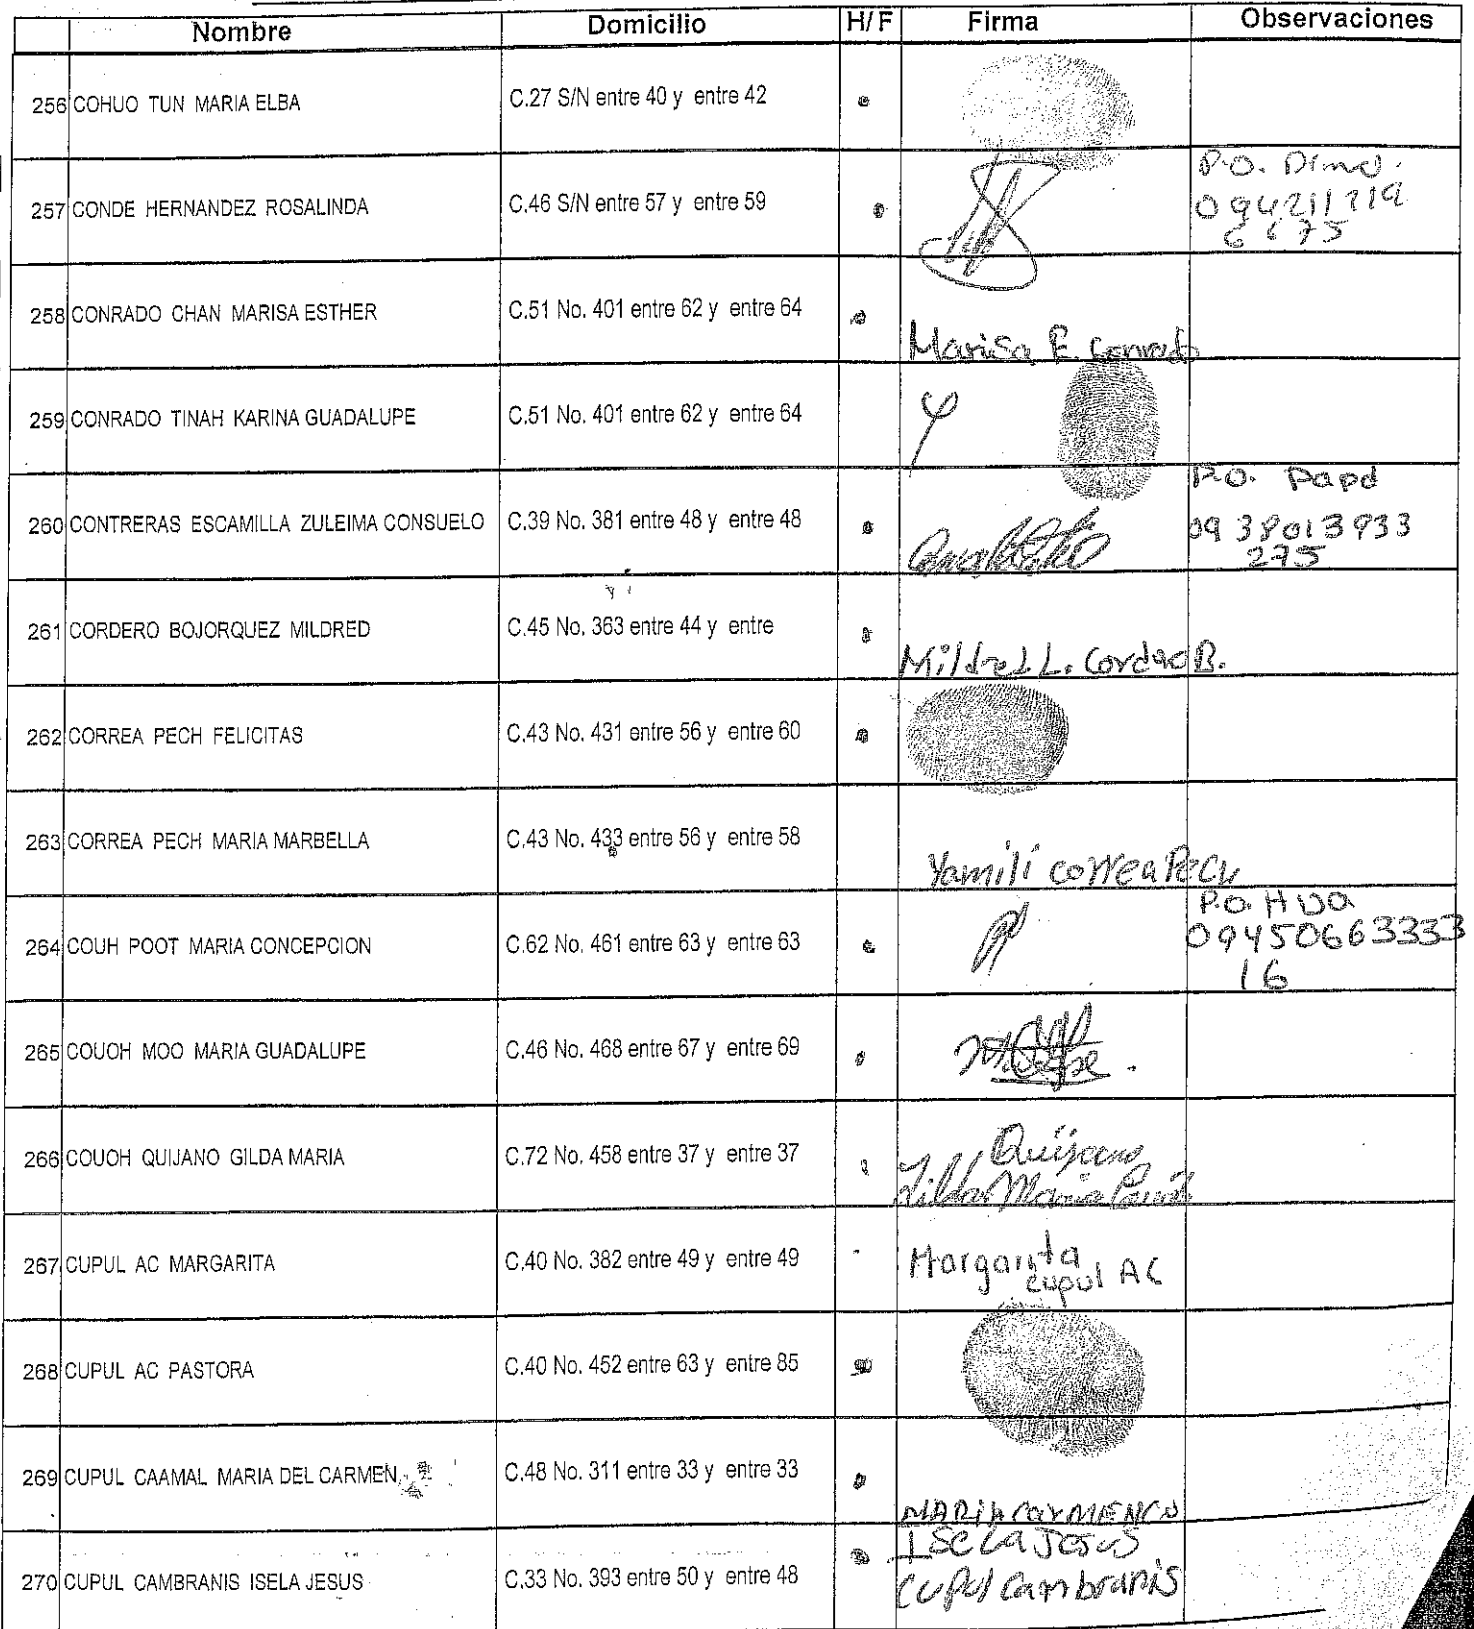 Nombre Domicilio H/F Firma Observaciones
256 COHUO TUN MARIA ELBA C.27 S/N entre 40 y entre 42
P.O.
257 CONDE HERNANDEZ ROSALINDA C.46 S/N entre 57 y entre 59
258 CONRADO CHAN MARISA ESTHER C.51 No. 401 entre 62 y entre 64
Marisa E. Conrado
259 CONRADO TINAH KARINA GUADALUPE C.51 No. 401 entre 62 y entre 64
P.O. Papá
260 CONTRERAS ESCAMILLA ZULEIMA CONSUELO C.39 No. 381 entre 48 y entre 48 0938013933
275
261 CORDERO BOJORQUEZ MILDRED C.45 No. 363 entre 44 y entre
Mildred L. Cordero B.
262 CORREA PECH FELICITAS C.43 No. 431 entre 56 y entre 60
263 CORREA PECH MARIA MARBELLA C.43 No. 433 entre 56 y entre 58
Yamili correa Pech
P.O. HIJA
264 COUH POOT MARIA CONCEPCION C.62 No. 461 entre 63 y entre 63 09450663333
16
265 COUOH MOO MARIA GUADALUPE C.46 No. 468 entre 67 y entre 69
266 COUOH QUIJANO GILDA MARIA C.72 No. 458 entre 37 y entre 37 Quijano
Gilda Maria Couoh
267 CUPUL AC MARGARITA C.40 No. 382 entre 49 y entre 49 Margarita
cupul AC
268 CUPUL AC PASTORA C.40 No. 452 entre 63 y entre 85
269 CUPUL CAAMAL MARIA DEL CARMEN C.48 No. 311 entre 33 y entre 33
MARIA CarMEN
ISELA JESUS
270 CUPUL CAMBRANIS ISELA JESUS C.33 No. 393 entre 50 y entre 48
cupul Cambranis